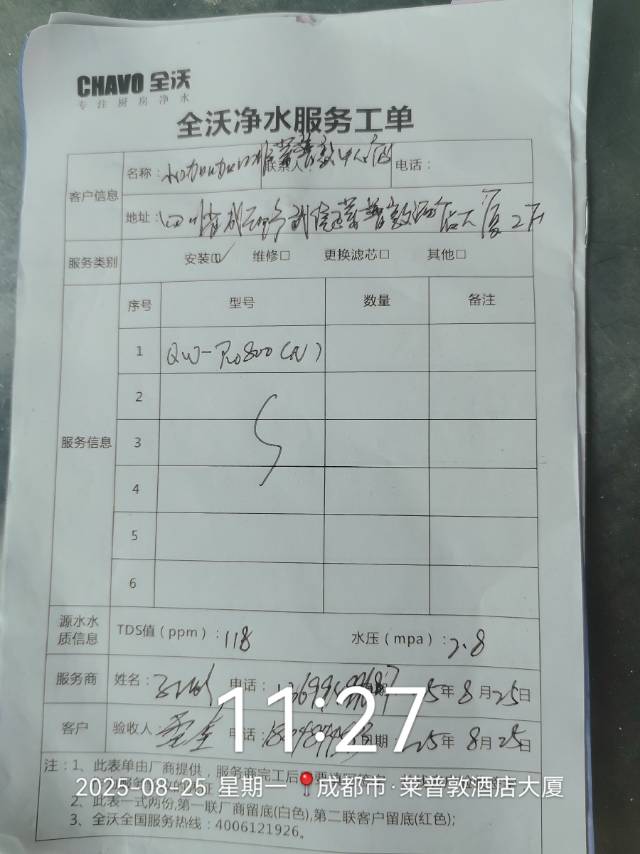 CHAVO 全沃
专注厨房净水
全沃净水服务工单
客户信息
名称：
联系人：
电话：
地址：四川省成都 武侯 莱普敦酒店大厦
服务类别 安装☑ 维修□ 更换滤芯□ 其他□
服务信息
序号 型号 数量 备注
1 QW-Pro800(N)
2
3
4
5
6
源水水质信息 TDS值（ppm）：118 水压（mpa）：2.8
服务商 姓名： 电话： 25年8月25日
客户 验收人： 电话： 日期 25年8月25日
11:27
注：1、此表单由厂商提供，服务商完工后
2025-08-25 星期一 成都市·莱普敦酒店大厦
2、此表一式两份,第一联厂商留底(白色),第二联客户留底(红色);
3、全沃全国服务热线：4006121926。